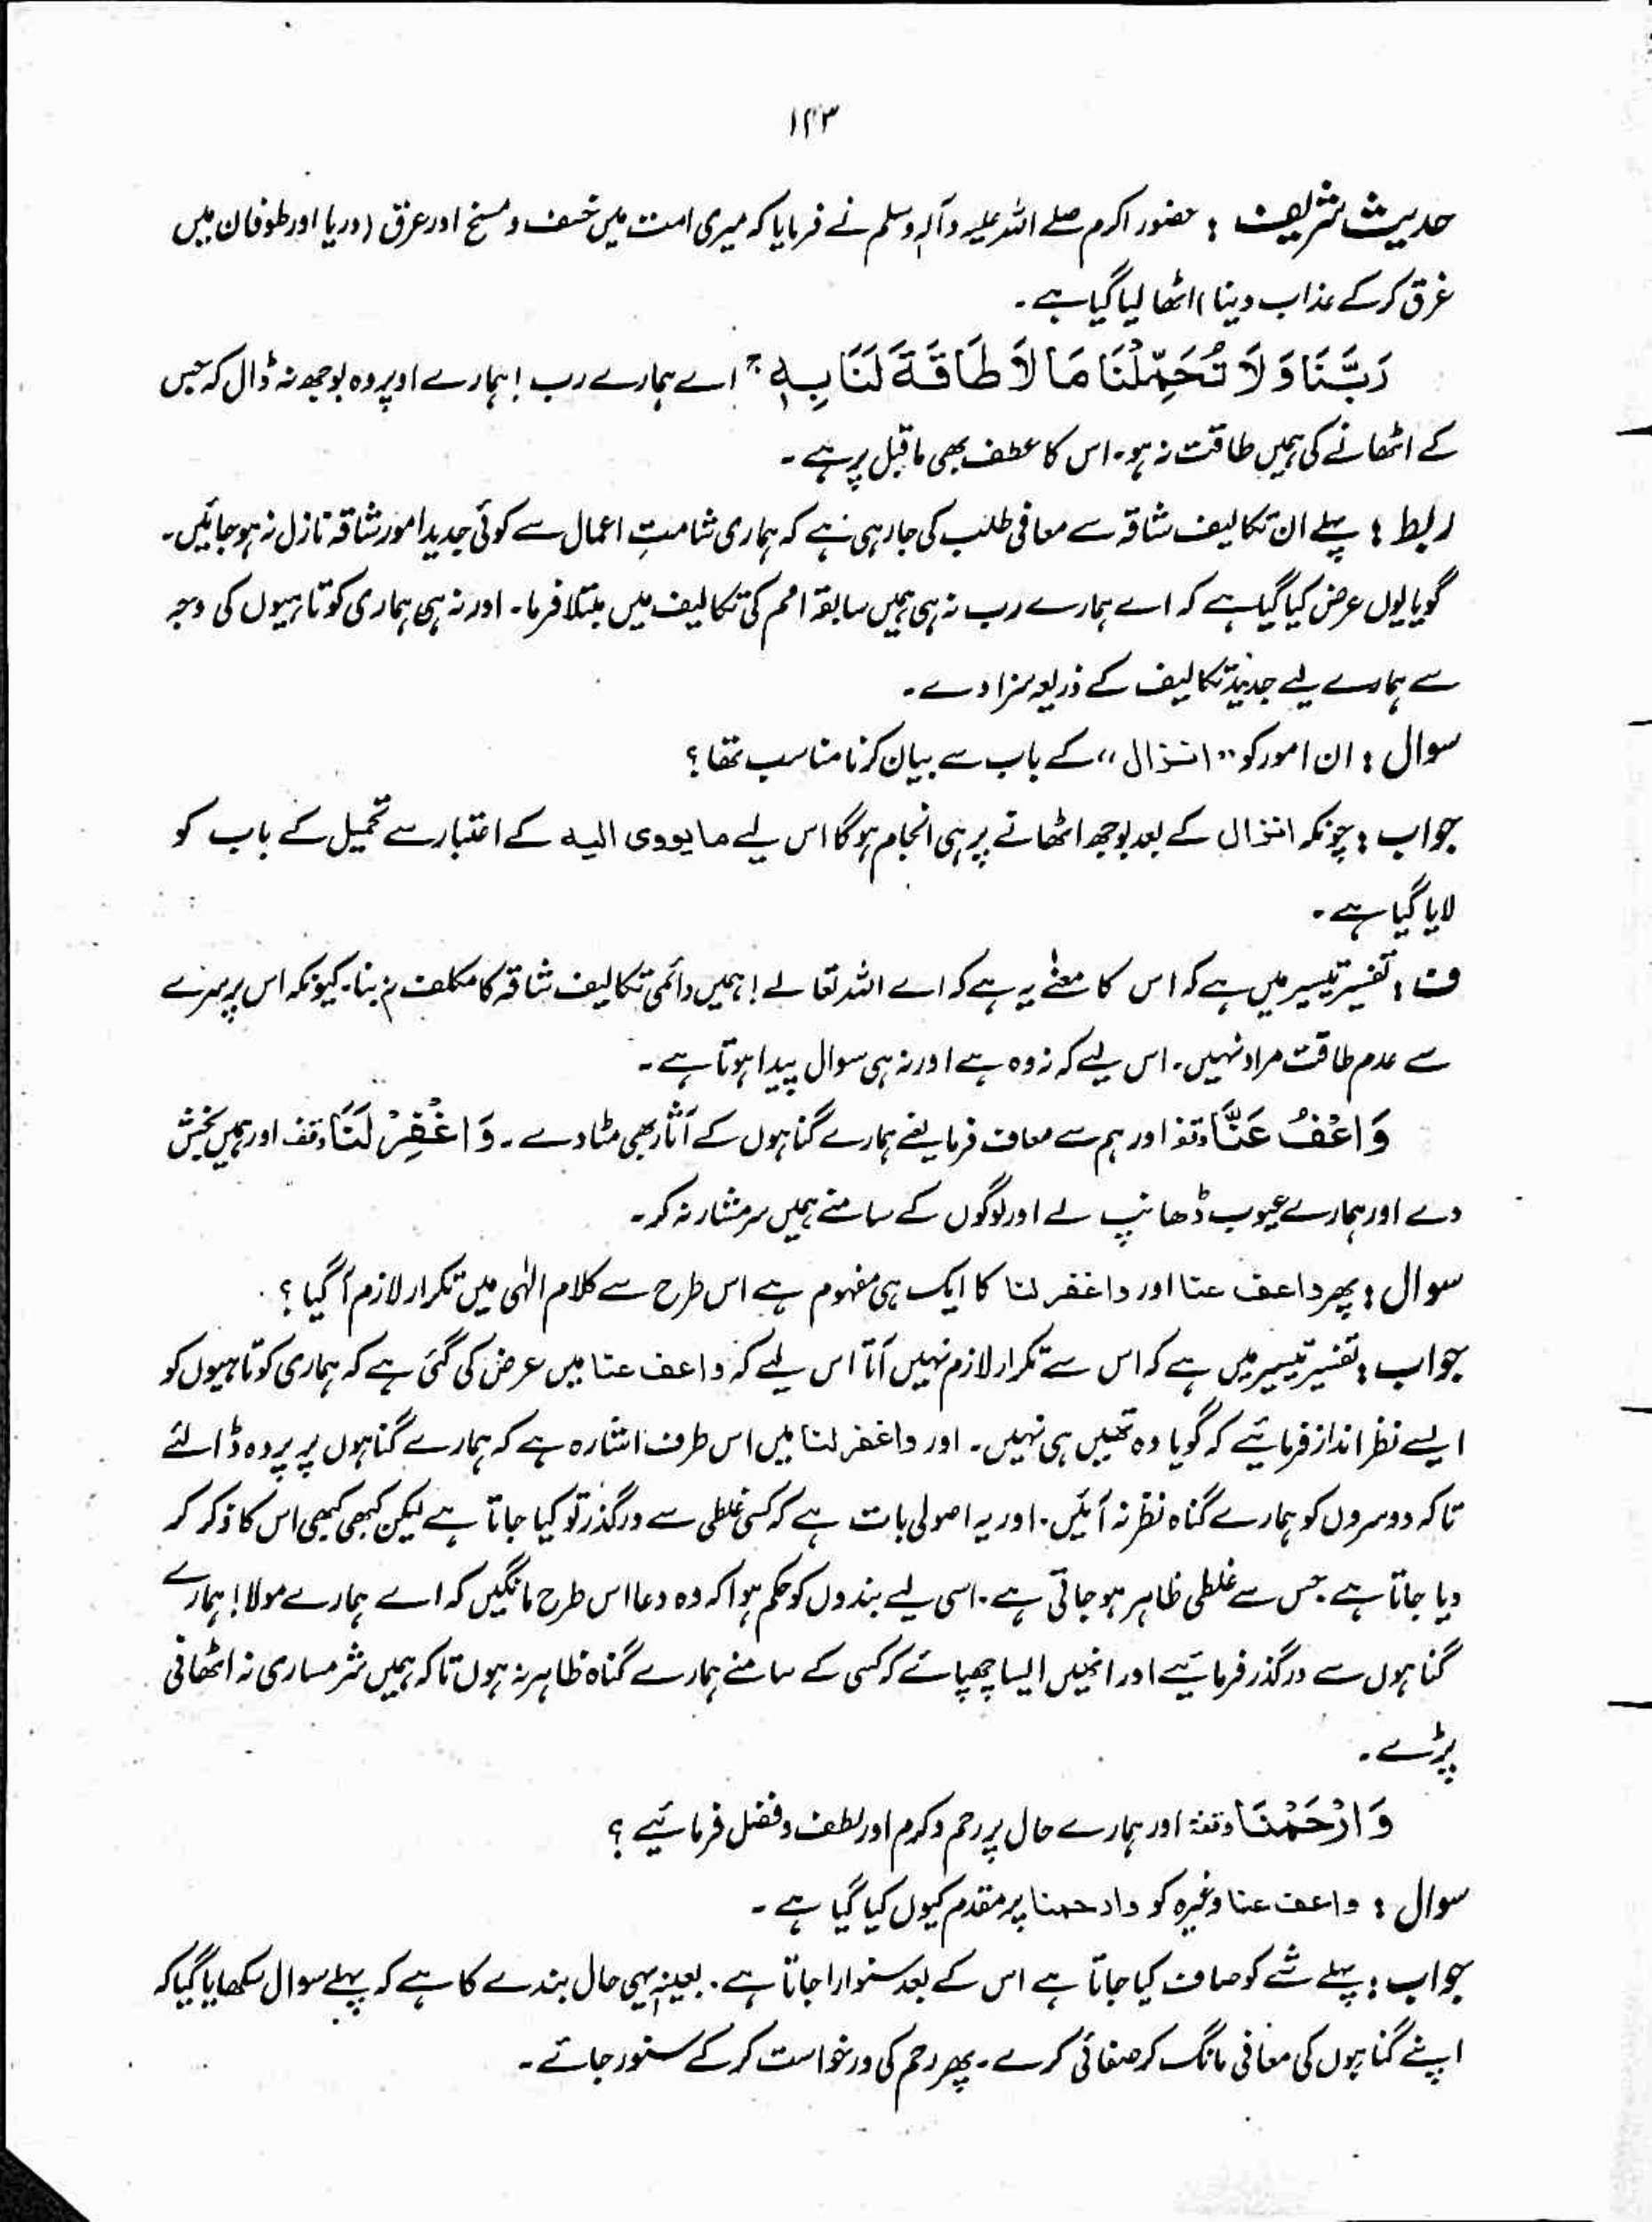 ۱۴۳
حدیث شریف : حضور اکرم صلے اللہ علیہ وآلہٖ وسلم نے فرمایا کہ میری امت میں خسف و مسخ اور عرق (دریا اور طوفان میں
غرق کرکے عذاب دینا) اٹھا لیا گیا ہے ۔
رَبَّنَا وَلَا تُحَمِّلْنَا مَا لَا طَاقَةَ لَنَا بِهٖ ج اے ہمارے رب ! ہمارے اوپر وہ بوجھ نہ ڈال کہ جس
کے اٹھانے کی ہمیں طاقت نہ ہو ۔ اس کا عطف بھی ماقبل پر ہے ۔
ربط : پہلے ان تکالیف شاقہ سے معافی طلب کی جا رہی ہے کہ ہماری شامتِ اعمال سے کوئی جدید امور شاقہ نازل نہ ہو جائیں ۔
گویا یوں عرض کیا گیا ہے کہ اے ہمارے رب نہ ہی ہمیں سابقہ امم کی تکالیف میں مبتلا فرما ۔ اور نہ ہی ہماری کوتاہیوں کی وجہ
سے ہمارے لیے جدید تکالیف کے ذریعہ سزا دے ۔
سوال : ان امور کو ”انزال“ کے باب سے بیان کرنا مناسب تھا ؟
جواب : چونکہ انزال کے بعد بوجھ اٹھانے پر ہی انجام ہوگا اس لیے ما یووی الیہ کے اعتبار سے تحمیل کے باب کو
لایا گیا ہے ۔
ف : تفسیر تیسیر میں ہے کہ اس کا معنٰے یہ ہے کہ اے اللہ تعالےٰ ! ہمیں دائمی تکالیف شاقہ کا مکلف نہ بنا ۔ کیونکہ اس پر سرے
سے عدم طاقت مراد نہیں ۔ اس لیے کہ نہ وہ ہے اور نہ ہی سوال پیدا ہوتا ہے ۔
وَاعْفُ عَنَّا وقفہ اور ہم سے معاف فرما یعنے ہمارے گناہوں کے آثار بھی مٹا دے ۔ وَاغْفِرْ لَنَا وقف اور ہمیں بخش
دے اور ہمارے عیوب ڈھانپ لے اور لوگوں کے سامنے ہمیں سرمشار نہ کر ۔
سوال : پھر واعف عنا اور واغفر لنا کا ایک ہی مفہوم ہے اس طرح سے کلام الٰہی میں تکرار لازم آ گیا ؟
جواب : تفسیر تیسیر میں ہے کہ اس سے تکرار لازم نہیں آتا اس لیے کہ واعف عنا میں عرض کی گئی ہے کہ ہماری کوتاہیوں کو
ایسے نظر انداز فرمائیے کہ گویا وہ تھیں ہی نہیں ۔ اور واغفر لنا میں اس طرف اشارہ ہے کہ ہمارے گناہوں پر پردہ ڈالئے
تاکہ دوسروں کو ہمارے گناہ نظر نہ آئیں ۔ اور یہ اصولی بات ہے کہ کسی غلطی سے درگذر تو کیا جاتا ہے لیکن کبھی کبھی اس کا ذکر کر
دیا جاتا ہے جس سے غلطی ظاہر ہو جاتی ہے ۔ اسی لیے بندوں کو حکم ہوا کہ وہ دعا اس طرح مانگیں کہ اے ہمارے مولا ! ہمارے
گناہوں سے درگذر فرمائیے اور انھیں ایسا چھپائے کہ کسی کے سامنے ہمارے گناہ ظاہر نہ ہوں تاکہ ہمیں شرمساری نہ اٹھانی
پڑے ۔
وَارْحَمْنَا وقفہ اور ہمارے حال پر رحم و کرم اور لطف و فضل فرمائیے ؟
سوال : واعف عنا وغیرہ کو وارحمنا پر مقدم کیوں کیا گیا ہے ۔
جواب : پہلے شے کو صاف کیا جاتا ہے اس کے بعد سنوارا جاتا ہے ۔ بعینہٖ یہی حال بندے کا ہے کہ پہلے سوال سکھایا گیا کہ
اپنے گناہوں کی معافی مانگ کر صفائی کرے ۔ پھر رحم کی درخواست کر کے سنور جائے ۔